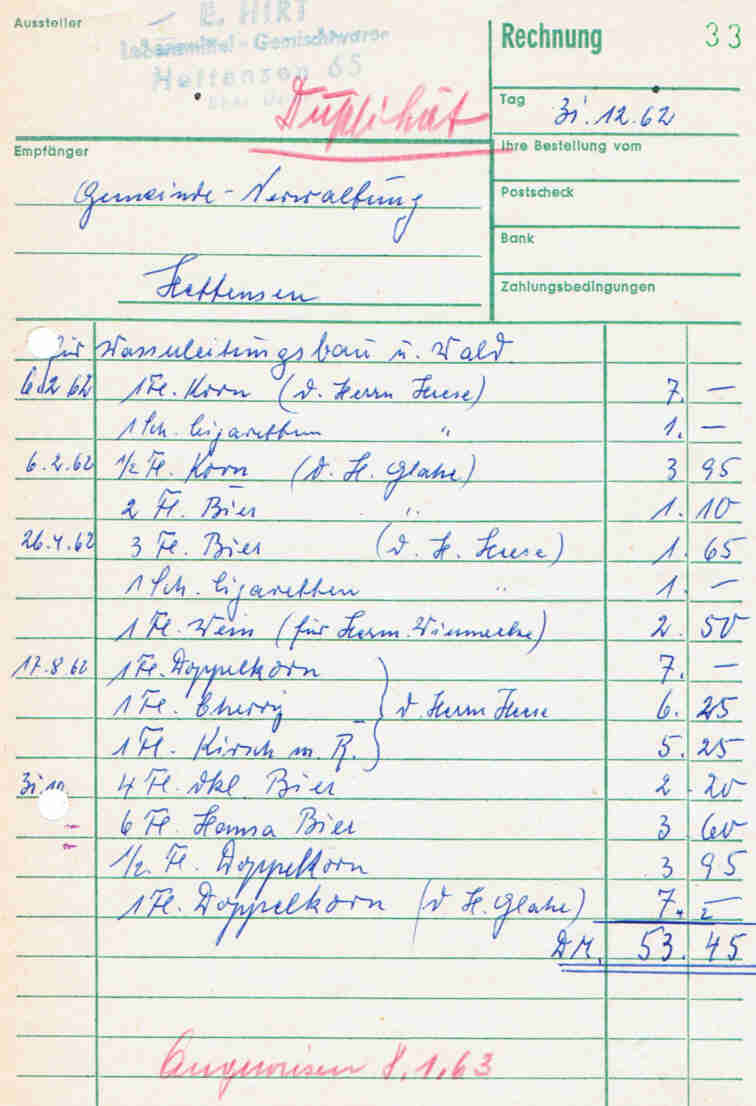 Aussteller
E. HIRT
Lebensmittel - Gemischtwaren
Hettensen 65
Duplikat
Rechnung 33
Tag 31.12.62
Ihre Bestellung vom
Postscheck
Bank
Zahlungsbedingungen
Empfänger
Gemeinde-Verwaltung
Hettensen
Für Wasserleitungsbau u. Wald
6.2.62 1 Fl. Korn (d. Herrn Hense) 7. —
1 Sch. Cigaretten " 1. —
6.2.62 1/2 Fl. Korn (d. H. Glahe) 3 95
2 Fl. Bier " 1. 10
26.4.62 3 Fl. Bier (d. H. Hense) 1. 65
1 Sch. Cigaretten " 1. —
1 Fl. Wein (für Herrn Winnecke) 2. 50
17.8.62 1 Fl. Doppelkorn 7. —
1 Fl. Cherry } d. Herrn Hense 6. 25
1 Fl. Kirsch m. R. 5. 25
31.10. 4 Fl. dkl. Bier 2. 20
6 Fl. Hansa Bier 3. 60
1/2 Fl. Doppelkorn 3 95
1 Fl. Doppelkorn (d H. Glahe) 7. —
DM. 53. 45
Angewiesen 8.1.63